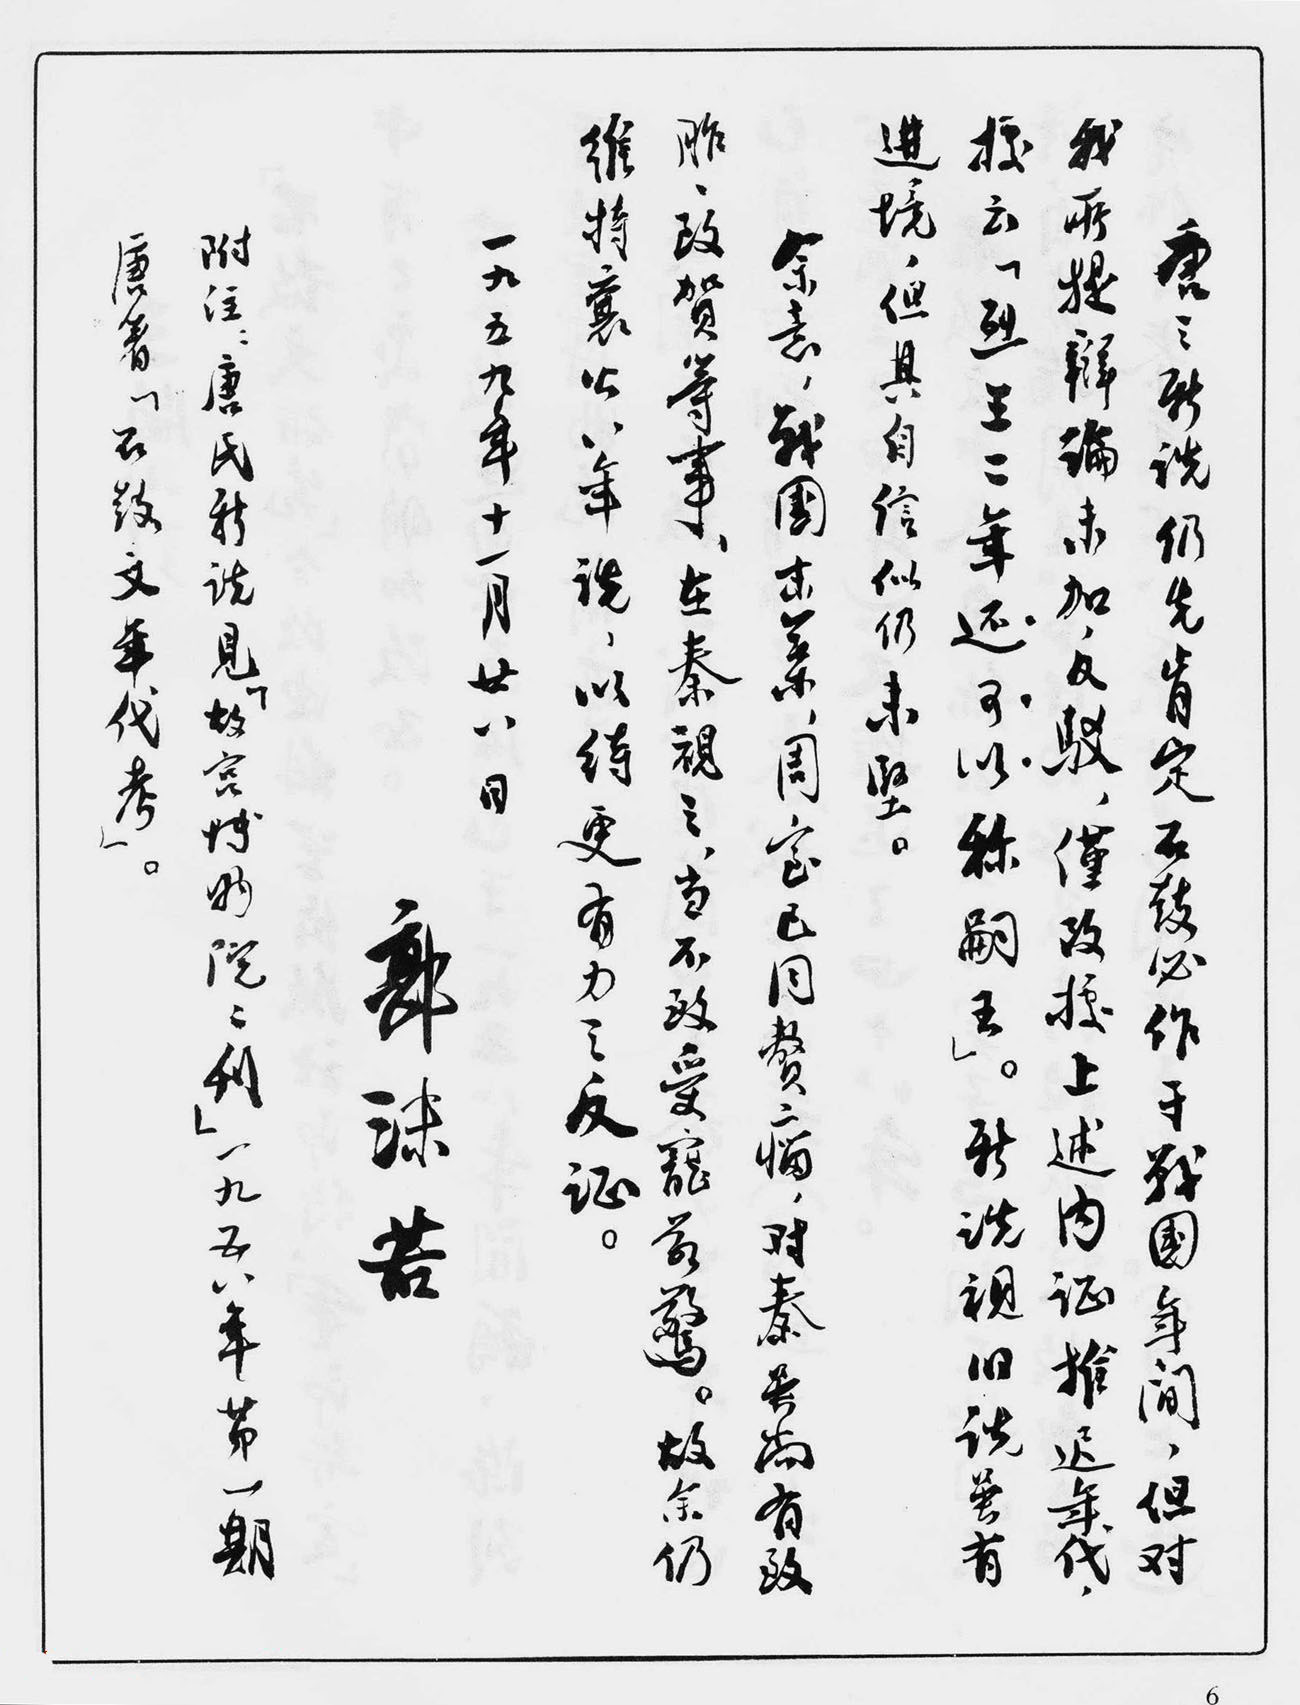 唐之新说仍先肯定石鼓必作于战国年间，但对
我所提辩论未加反驳，仅改据上述内证推迟年代，
据云「烈王二年还可以称嗣王」。新说视旧说虽有
进境，但其自信似仍未坚。
余意，战国末叶，周室已同赘瘤，对秦虽尚有致
胙、致贺等事，在秦视之，当不致受宠若惊。故余仍
维持襄公八年说，以待更有力之反证。
一九五九年十一月廿八日
郭沫若
附注：唐氏新说见「故宫博物院院刊」一九五八年第一期
唐著「石鼓文年代考」。
6